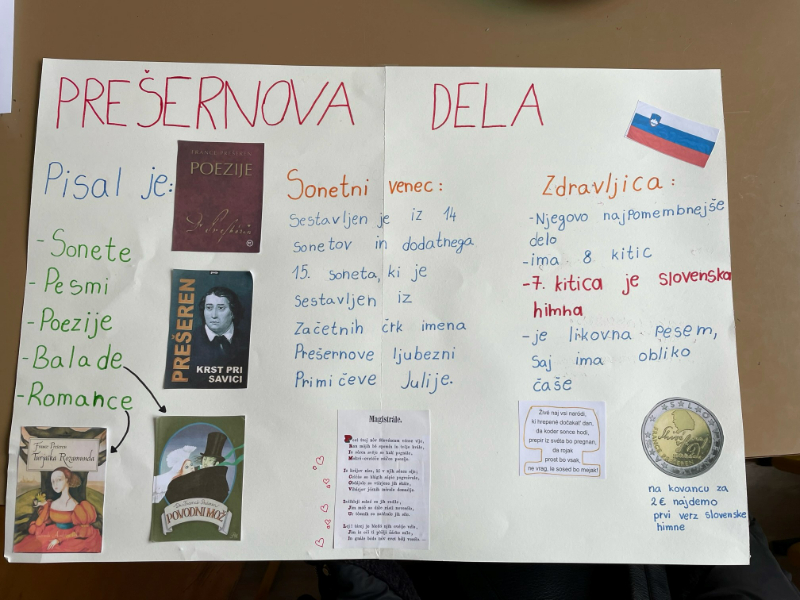 PREŠERNOVA DELA
Pisal je:
- Sonete
- Pesmi
- Poezije
- Balade
- Romance
POEZIJE
PREŠEREN
KRST PRI
SAVICI
Turjaška Rozamunda
POVODNI MOŽ
Sonetni venec:
Sestavljen je iz 14
sonetov in dodatnega
15. soneta, ki je
sestavljen iz
začetnih črk imena
Prešernove ljubezni
Primičeve Julije.
Magistrale.
Zdravljica:
- Njegovo najpomembnejše
delo
- ima 8 kitic
- 7. kitica je slovenska
himna
- je likovna pesem,
saj ima obliko
čaše
Živé naj vsi naródi,
ki hrepené dočakat' dan,
da koder sonce hodi,
prepir iz svéta bo pregnan,
da rojak
prost bo vsak,
ne vrag, le sosed bo mejak!
na kovancu za
2€ najdemo
prvi verz slovenske
himne